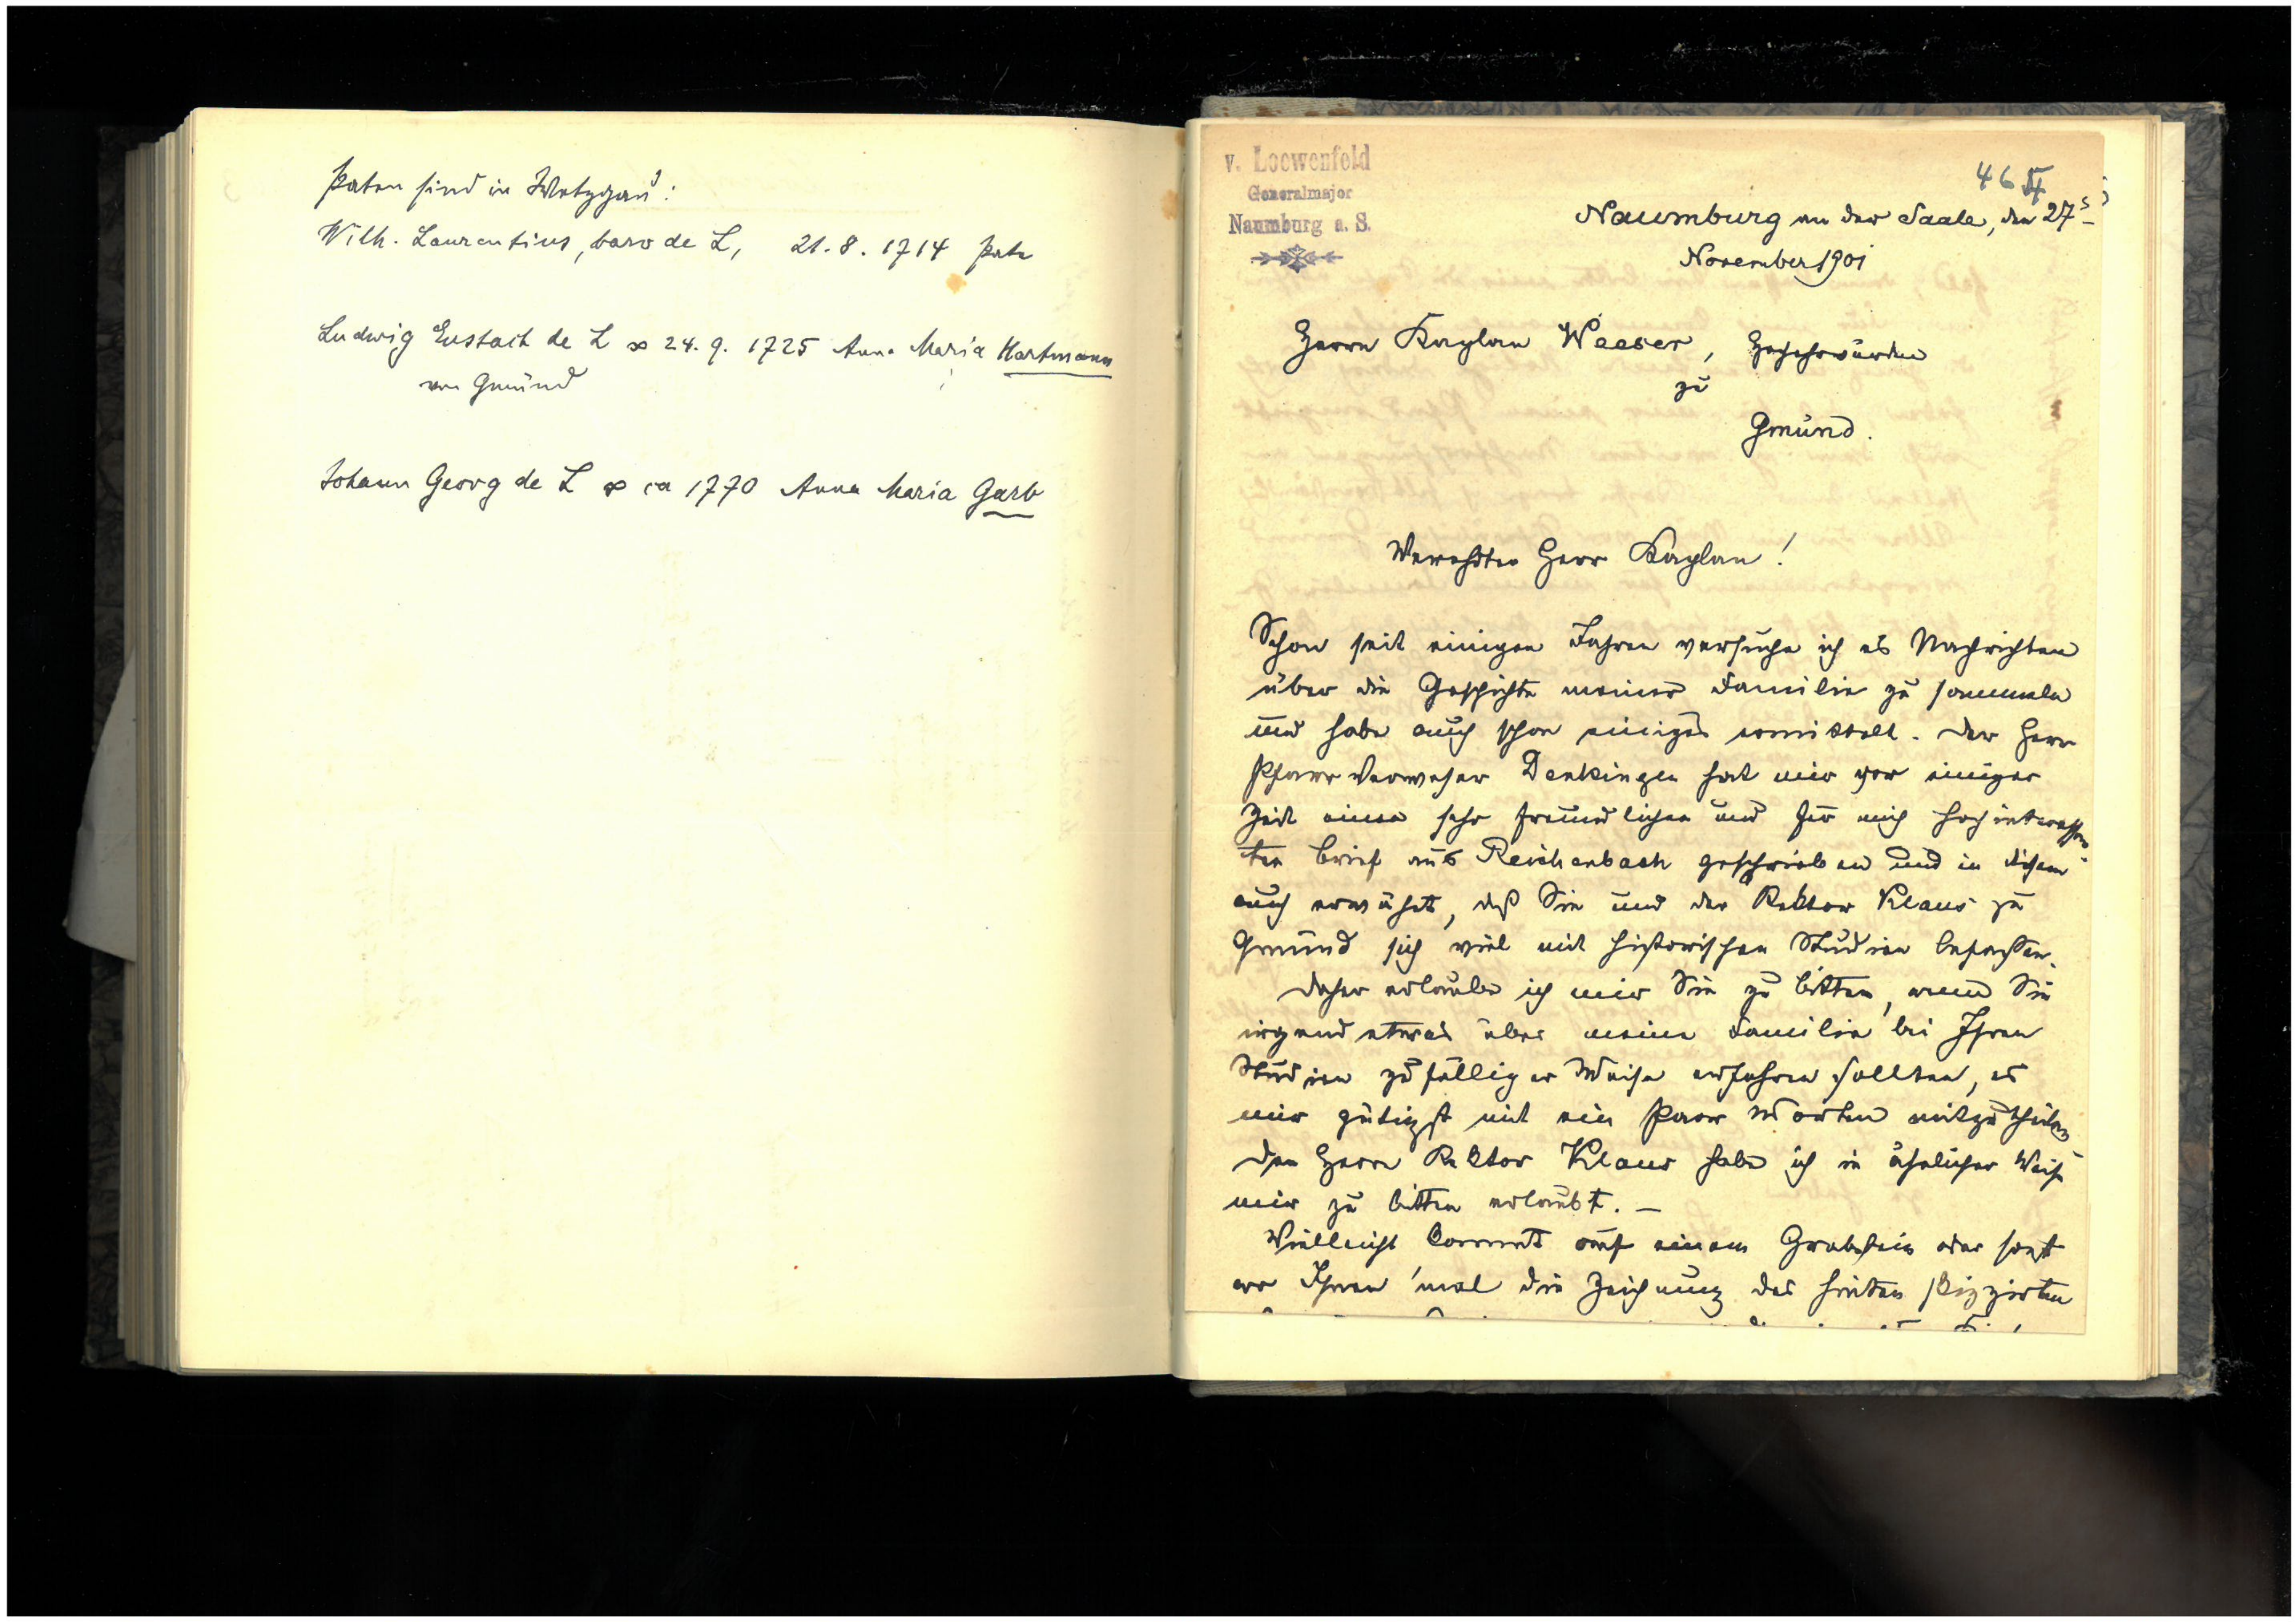 Paten sind in Wetzgau:
Wilh. Laurentius, baro de L, 21. 8. 1714 Pate
Ludwig Eustach de L ∞ 24. 9. 1725 Anna Maria Hartmann
von Gmünd
Johann Georg de L ∞ ca 1770 Anna Maria Garb
v. Loewenfeld
Generalmajor
Naumburg a. S.
46
Naumburg an der Saale, den 27t
November 1901
Herrn Kaplan Weeser, Hochwürden
zu
Gmünd.
Verehrter Herr Kaplan!
Schon seit einigen Jahren versuche ich es Nachrichten
über die Geschichte meiner Familie zu sammeln
und habe auch schon einiges ermittelt. Der Herr
Pfarrverweser Denkinger hat mir vor einiger
Zeit einen sehr freundlichen und für mich hochinteressan
ten Brief aus Reichenbach geschrieben und in diesem
auch erwähnt, daß Sie und der Rektor Klaus zu
Gmünd sich viel mit historischen Studien befassen.
Daher erlaube ich mir Sie zu bitten, wenn Sie
irgend etwas über meine Familie bei Ihren
Studien zufälliger Weise erfahren sollten, es
mir gütigst mit ein Paar Worten mitzutheilen
Den Herrn Rektor Klaus habe ich in ähnlicher Weise
mir zu bitten erlaubt. —
Vielleicht kommt auf einem Grabstein oder sonst
wo Ihnen 'mal die Zeichnung des hinten skizzirten